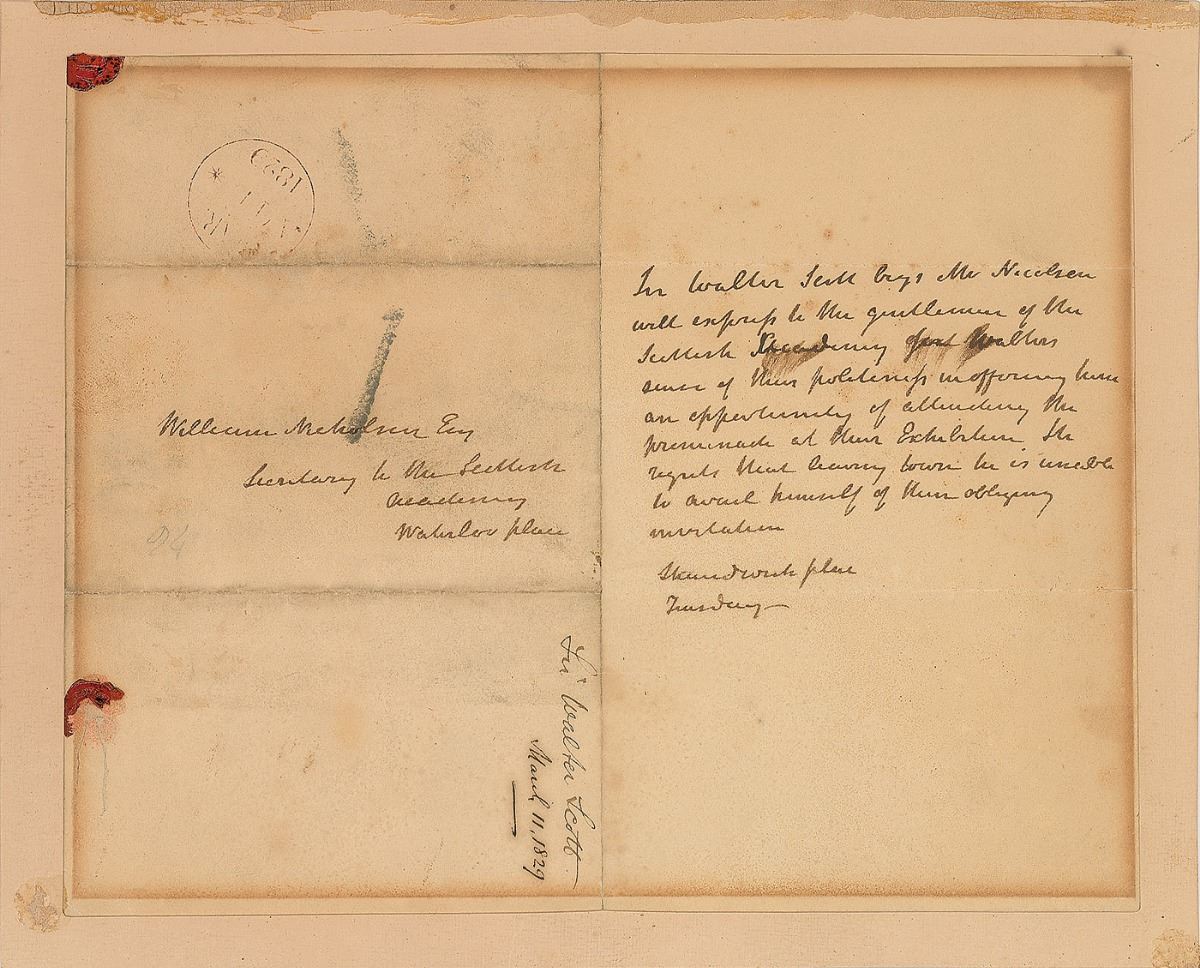 1829
William Nicholson Esq
Secretary to the Scottish
Academy
Waterloo place
Sir Walter Scott
March 11, 1829
Sir Walter Scott begs Mr Nicolson
will express to the gentlemen of the
Scottish Academy Walters
sense of their politeness in offering him
an opportunity of attending the
promenade at their Exhibition He
regrets that leaving town he is unable
to avail himself of their obliging
invitation
Shandwick place
Tuesday